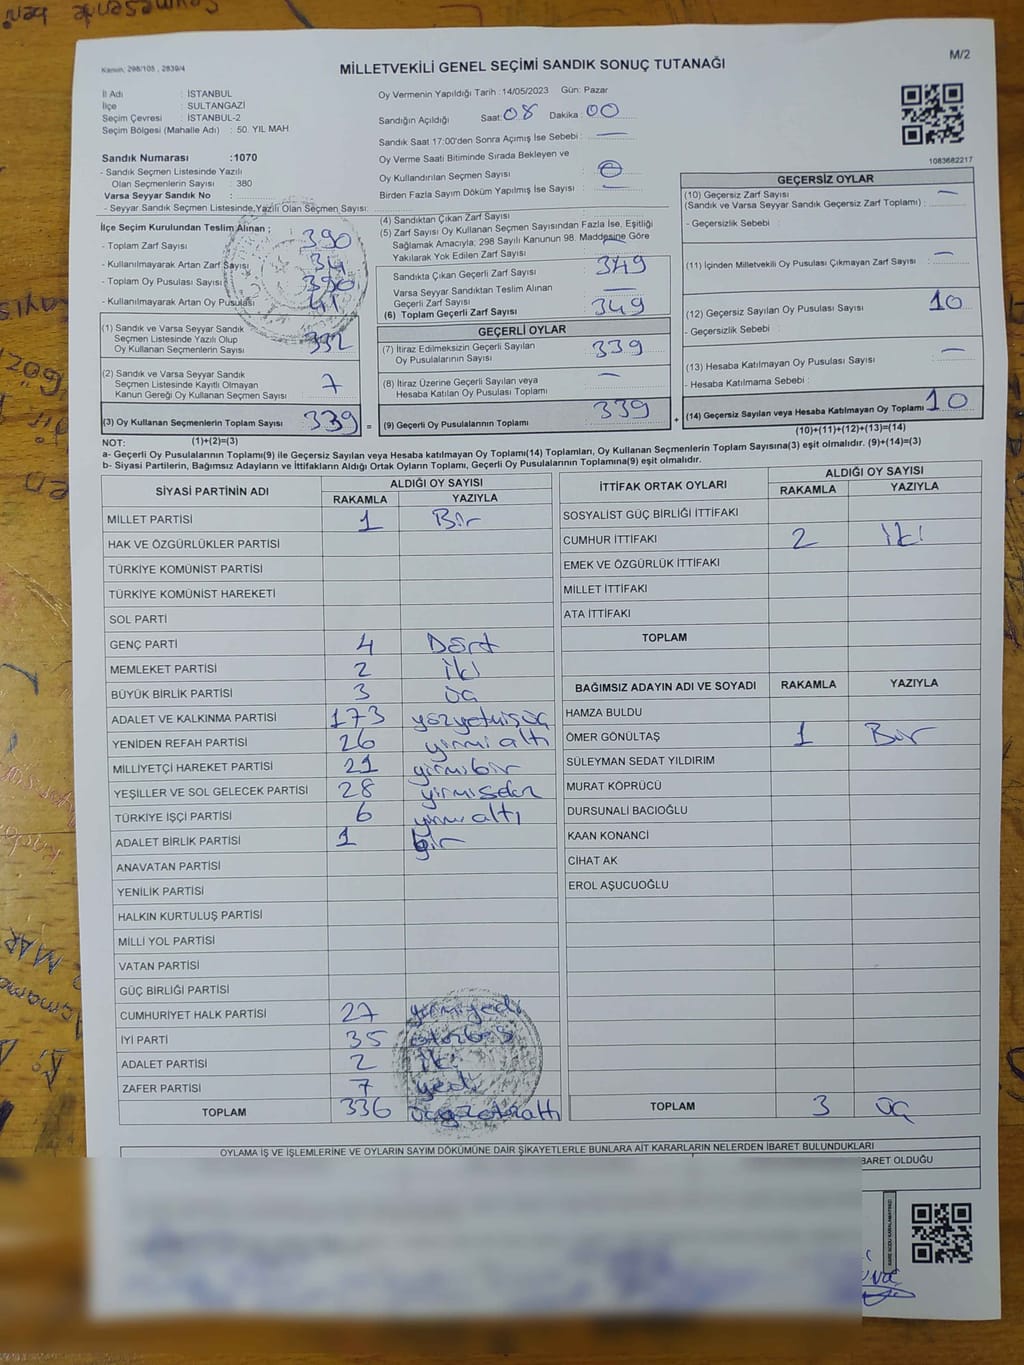 Kanun, 298/105 , 2839/4
M/2
MİLLETVEKİLİ GENEL SEÇİMİ SANDIK SONUÇ TUTANAĞI
İl Adı : İSTANBUL
İlçe : SULTANGAZİ
Seçim Çevresi : İSTANBUL-2
Seçim Bölgesi (Mahalle Adı) : 50. YIL MAH
Sandık Numarası :1070
- Sandık Seçmen Listesinde Yazılı
Olan Seçmenlerin Sayısı : 380
Varsa Seyyar Sandık No :
- Seyyar Sandık Seçmen Listesinde Yazılı Olan Seçmen Sayısı:
Oy Vermenin Yapıldığı Tarih :14/05/2023 Gün: Pazar
Sandığın Açıldığı Saat: 08 Dakika : 00
Sandık Saat 17:00'den Sonra Açımış İse Sebebi : —
Oy Verme Saati Bitiminde Sırada Bekleyen ve
Oy Kullandırılan Seçmen Sayısı : 0
Birden Fazla Sayım Döküm Yapılmış İse Sayısı : —
1083682217
İlçe Seçim Kurulundan Teslim Alınan ;
- Toplam Zarf Sayısı 390
- Kullanılmayarak Artan Zarf Sayısı 34
- Toplam Oy Pusulası Sayısı 390
- Kullanılmayarak Artan Oy Pusulası 41
(1) Sandık ve Varsa Seyyar Sandık
Seçmen Listesinde Yazılı Olup
Oy Kullanan Seçmenlerin Sayısı 332
(2) Sandık ve Varsa Seyyar Sandık
Seçmen Listesinde Kayıtlı Olmayan
Kanun Gereği Oy Kullanan Seçmen Sayısı 7
(3) Oy Kullanan Seçmenlerin Toplam Sayısı 339
(1)+(2)=(3)
(4) Sandıktan Çıkan Zarf Sayısı
(5) Zarf Sayısı Oy Kullanan Seçmen Sayısından Fazla İse, Eşitliği
Sağlamak Amacıyla; 298 Sayılı Kanunun 98. Maddesine Göre
Yakılarak Yok Edilen Zarf Sayısı —
Sandıkta Çıkan Geçerli Zarf Sayısı 349
Varsa Seyyar Sandıktan Teslim Alınan
Geçerli Zarf Sayısı —
(6) Toplam Geçerli Zarf Sayısı 349
GEÇERLİ OYLAR
(7) İtiraz Edilmeksizin Geçerli Sayılan
Oy Pusulalarının Sayısı 339
(8) İtiraz Üzerine Geçerli Sayılan veya
Hesaba Katılan Oy Pusulası Toplamı —
= (9) Geçerli Oy Pusulalarının Toplamı 339 +
GEÇERSİZ OYLAR
(10) Geçersiz Zarf Sayısı —
(Sandık ve Varsa Seyyar Sandık Geçersiz Zarf Toplamı) :
- Geçersizlik Sebebi :
(11) İçinden Milletvekili Oy Pusulası Çıkmayan Zarf Sayısı —
(12) Geçersiz Sayılan Oy Pusulası Sayısı 10
- Geçersizlik Sebebi :
(13) Hesaba Katılmayan Oy Pusulası Sayısı —
- Hesaba Katılmama Sebebi :
(14) Geçersiz Sayılan veya Hesaba Katılmayan Oy Toplamı 10
(10)+(11)+(12)+(13)=(14)
NOT:
a- Geçerli Oy Pusulalarının Toplamı(9) ile Geçersiz Sayılan veya Hesaba katılmayan Oy Toplamı(14) Toplamları, Oy Kullanan Seçmenlerin Toplam Sayısına(3) eşit olmalıdır. (9)+(14)=(3)
b- Siyasi Partilerin, Bağımsız Adayların ve İttifakların Aldığı Ortak Oyların Toplamı, Geçerli Oy Pusulalarının Toplamına(9) eşit olmalıdır.
SİYASİ PARTİNİN ADI ALDIĞI OY SAYISI
RAKAMLA YAZIYLA
MİLLET PARTİSİ 1 Bir
HAK VE ÖZGÜRLÜKLER PARTİSİ
TÜRKİYE KOMÜNİST PARTİSİ
TÜRKİYE KOMÜNİST HAREKETİ
SOL PARTİ
GENÇ PARTİ 4 Dört
MEMLEKET PARTİSİ 2 iki
BÜYÜK BİRLİK PARTİSİ 3 üç
ADALET VE KALKINMA PARTİSİ 173 yüzyetmişüç
YENİDEN REFAH PARTİSİ 26 yirmi altı
MİLLİYETÇİ HAREKET PARTİSİ 21 yirmibir
YEŞİLLER VE SOL GELECEK PARTİSİ 28 yirmisekiz
TÜRKİYE İŞÇİ PARTİSİ 6 altı
ADALET BİRLİK PARTİSİ 1 bir
ANAVATAN PARTİSİ
YENİLİK PARTİSİ
HALKIN KURTULUŞ PARTİSİ
MİLLİ YOL PARTİSİ
VATAN PARTİSİ
GÜÇ BİRLİĞİ PARTİSİ
CUMHURİYET HALK PARTİSİ 27 yirmiyedi
İYİ PARTİ 35 otuzbeş
ADALET PARTİSİ 2 iki
ZAFER PARTİSİ 7 yedi
TOPLAM 336 üçyüzotuzaltı
İTTİFAK ORTAK OYLARI ALDIĞI OY SAYISI
RAKAMLA YAZIYLA
SOSYALİST GÜÇ BİRLİĞİ İTTİFAKI
CUMHUR İTTİFAKI 2 iki
EMEK VE ÖZGÜRLÜK İTTİFAKI
MİLLET İTTİFAKI
ATA İTTİFAKI
TOPLAM
BAĞIMSIZ ADAYIN ADI VE SOYADI RAKAMLA YAZIYLA
HAMZA BULDU
ÖMER GÖNÜLTAŞ 1 Bir
SÜLEYMAN SEDAT YILDIRIM
MURAT KÖPRÜCÜ
DURSUNALİ BACIOĞLU
KAAN KONANCİ
CİHAT AK
EROL AŞUCUOĞLU
TOPLAM 3 üç
OYLAMA İŞ VE İŞLEMLERİNE VE OYLARIN SAYIM DÖKÜMÜNE DAİR ŞİKAYETLERLE BUNLARA AİT KARARLARIN NELERDEN İBARET BULUNDUKLARI
BARET OLDUĞU